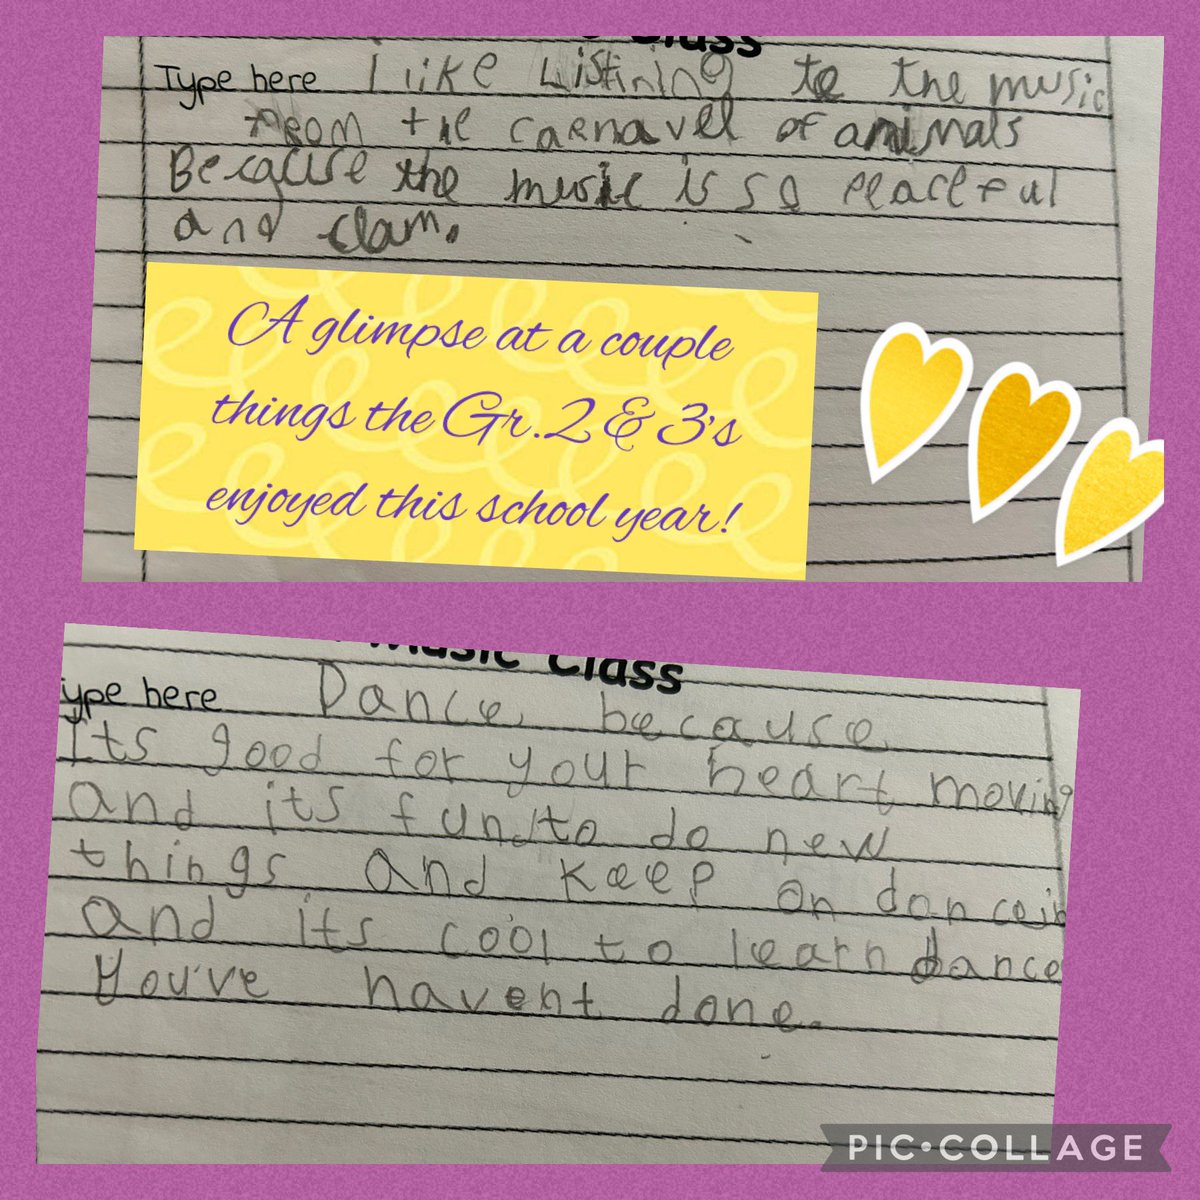 Class
Type here I like Listining to the music
from the carnavel of animals
Because the music is so peaceful
and clam.
A glimpse at a couple
things the Gr.2 & 3's
enjoyed this school year!
Music Class
ype here Dance, because
Its good for your heart moving
and its fun to do new
things and keep on danceing
and its cool to learn dance
You've havent done.
PIC•COLLAGE